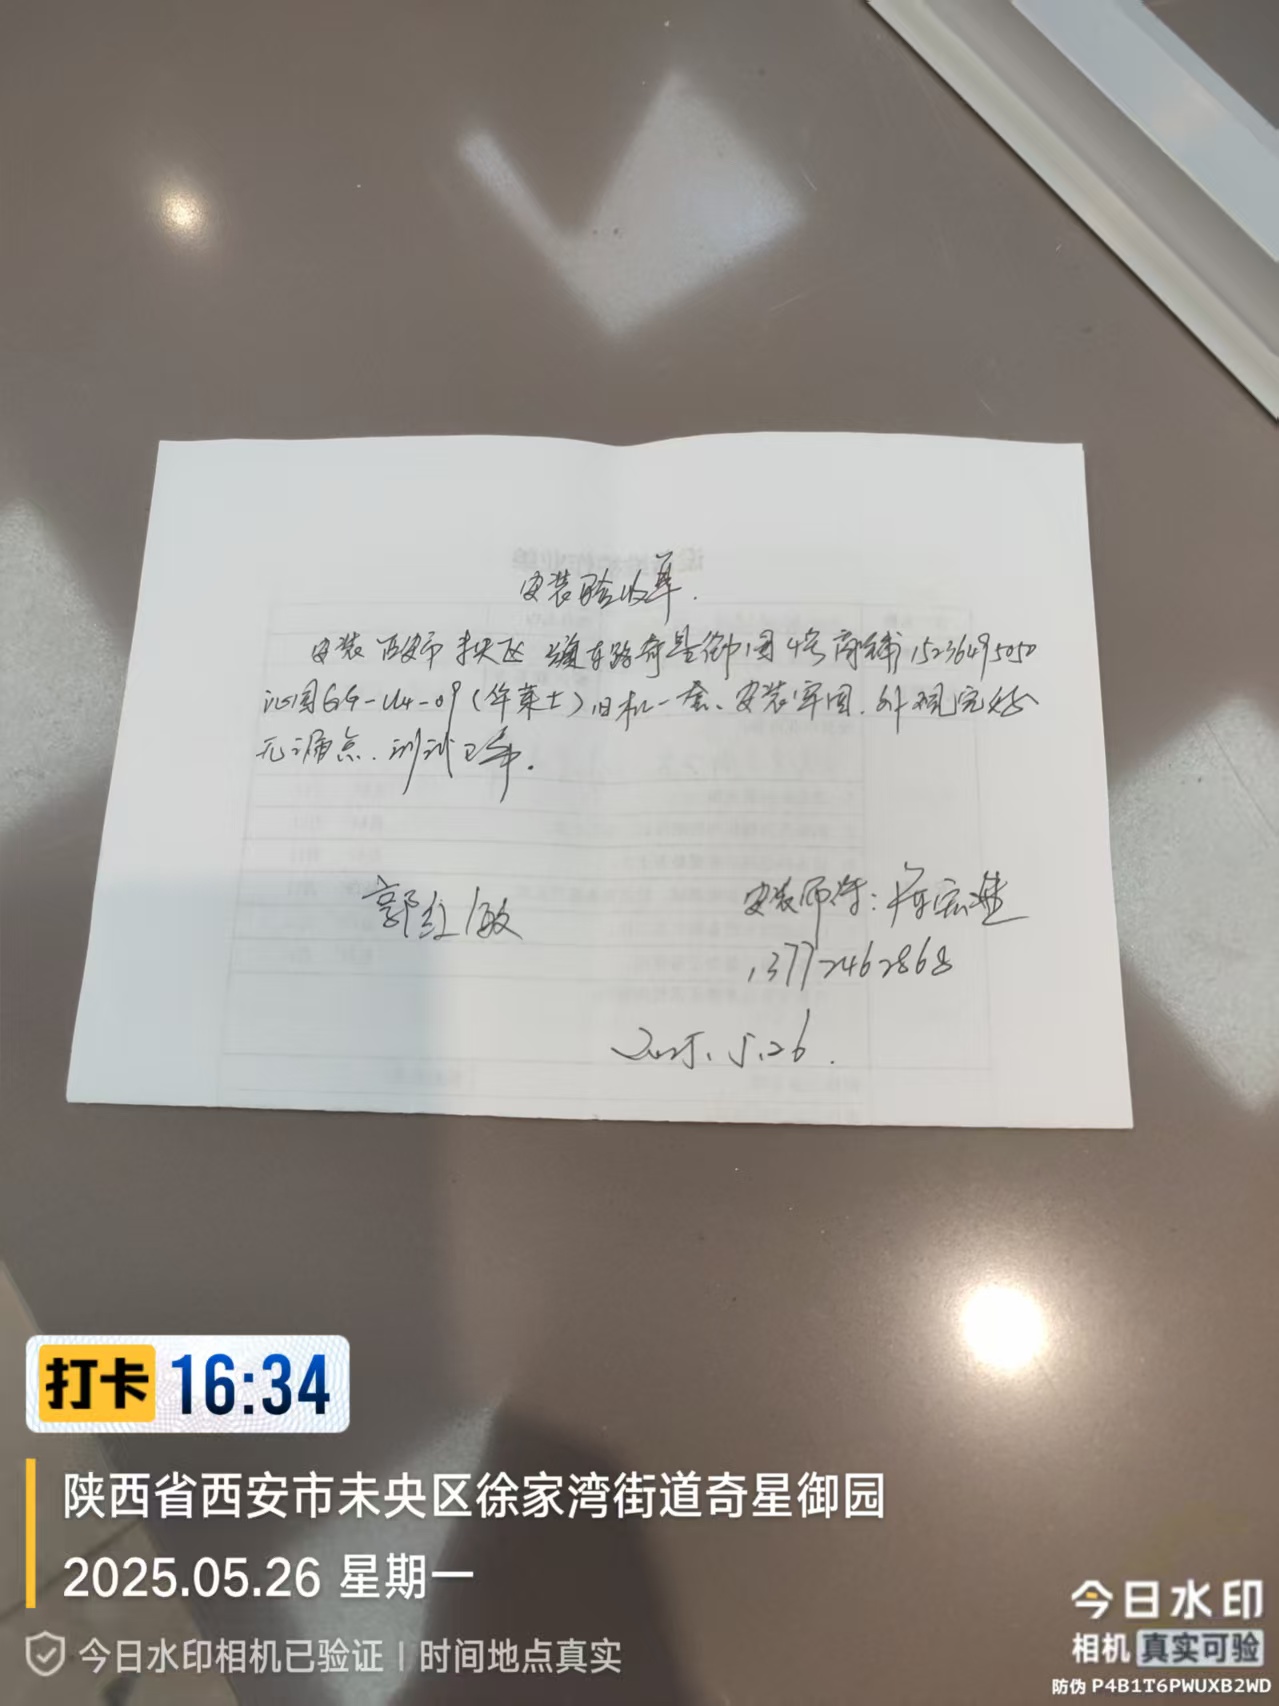 安装验收单.
安装西安市未央区 路奇星御园4号商铺15236495050
沁园GG-U4-09(华莱士)旧机一套、安装牢固.外观完好
无漏点.测试正常.
郭红敏
安装师傅:
13772462868
2025.5.26.
打卡 16:34
陕西省西安市未央区徐家湾街道奇星御园
2025.05.26 星期一
今日水印相机已验证 | 时间地点真实
今日水印
相机 真实可验
防伪 P4B1T6PWUXB2WD